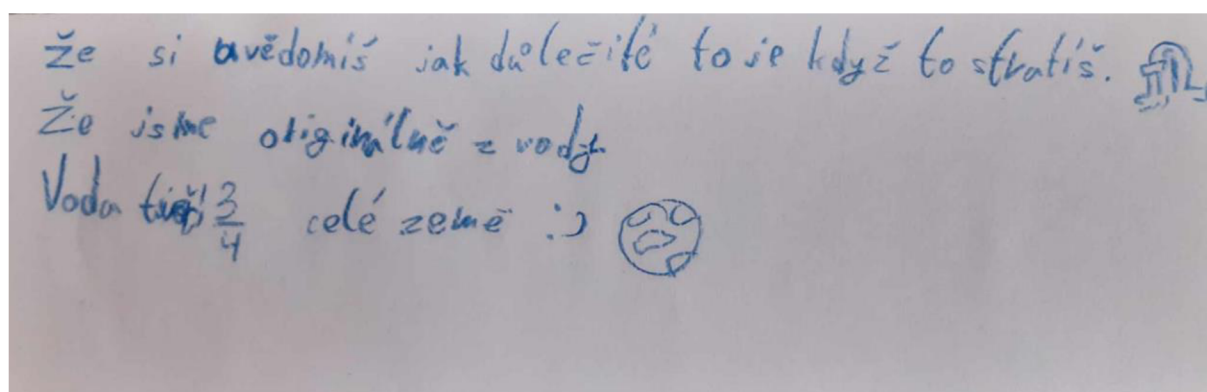 Že si uvědomíš jak důležité to je když to stratíš.
Že jsme originálně z vody
Voda tvoří 3/4 celé země :)